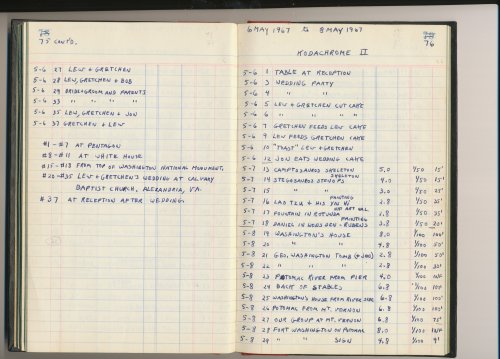 75 CONT'D.
5-6 27 LEW & GRETCHEN
5-6 28 LEW, GRETCHEN & BOB
5-6 29 BRIDE & GROOM AND PARENTS
5-6 33 " " " "
5-6 35 LEW, GRETCHEN & JON
5-6 37 GRETCHEN & LEW
#1-#7 AT PENTAGON
#8-#11 AT WHITE HOUSE
#15-#18 FROM TOP OF WASHINGTON NATIONAL MONUMENT
#20-#35 LEW & GRETCHEN'S WEDDING AT CALVARY
BAPTIST CHURCH, ALEXANDRIA, VA.
#37 AT RECEPTION AFTER WEDDING.
6 MAY 1967 to 8 MAY 1967
76
KODACHROME II
5-6 1 TABLE AT RECEPTION
5-6 3 WEDDING PARTY
5-6 4 " "
5-6 5 LEW & GRETCHEN CUT CAKE
5-6 6 " " " "
5-6 7 GRETCHEN FEEDS LEW CAKE
5-6 9 LEW FEEDS GRETCHEN CAKE
5-6 10 "TOAST" LEW & GRETCHEN
5-6 12 JON EATS WEDDING CAKE
5-7 13 CAMPTOSAURUS SKELETON 5.0 1/50 15'
5-7 14 STEGOSAURUS STENOPS SKELETON 4.0 1/50 15'
5-7 15 " " 3.0 1/50 25'
5-7 16 LAO TZU & HIS PAINTING 2.8 1/50 35'
5-7 17 FOUNTAIN IN ROTUNDA NAT ART GAL. 2.8 1/50 35'
5-7 18 DANIEL IN LIONS DEN - RUBENS PAINTING 3.8 1/50 20'
5-8 19 WASHINGTON'S HOUSE 8.0 1/100
5-8 20 " " 4.8 1/100 50'
5-8 21 GEO. WASHINGTON TOMB 2.8 1/100 50'
5-8 22 " " 2.8 1/100
5-8 23 POTOMAC RIVER FROM PIER 4.0 1/100 INF
5-8 24 BACK OF STABLES 6.8 1/100 100'
5-8 25 WASHINGTON'S HOUSE FROM RIVER SIDE 6.8 1/100 100'
5-8 26 POTOMAC FROM MT. VERNON 6.8 1/100
5-8 27 OUR GROUP AT MT. VERNON 6.8 1/100
5-8 28 FORT WASHINGTON ON POTOMAC 8.0 1/100 INF
5-8 29 " " SIGN 4.8 1/100 9'